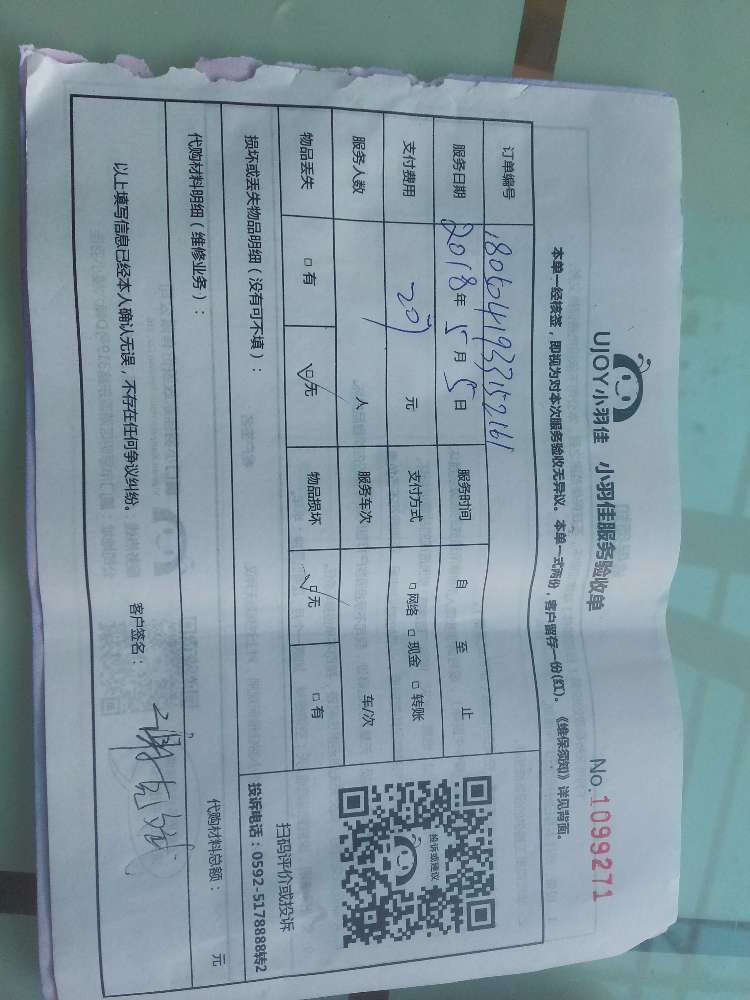 UJOY小羽佳 小羽佳服务验收单
No.1099271
本单一经核签，即视为对本次服务验收无异议。本单一式两份，客户留存一份(红)。《维保须知》详见背面。
订单编号 1805041933152161
服务日期 2018年5月5日 服务时间 自 至 止
支付费用 元 支付方式 □网络 □现金 □转账
服务人数 人 服务车次 车/次
物品丢失 □有 ☑无 物品损坏 ☑无 □有
损坏或丢失物品明细（没有可不填）：
投诉或建议
扫码评价或投诉
投诉电话：0592-5178888转2
代购材料明细（维修业务）： 代购材料总额： 元
以上填写信息已经本人确认无误，不存在任何争议纠纷。 客户签名：